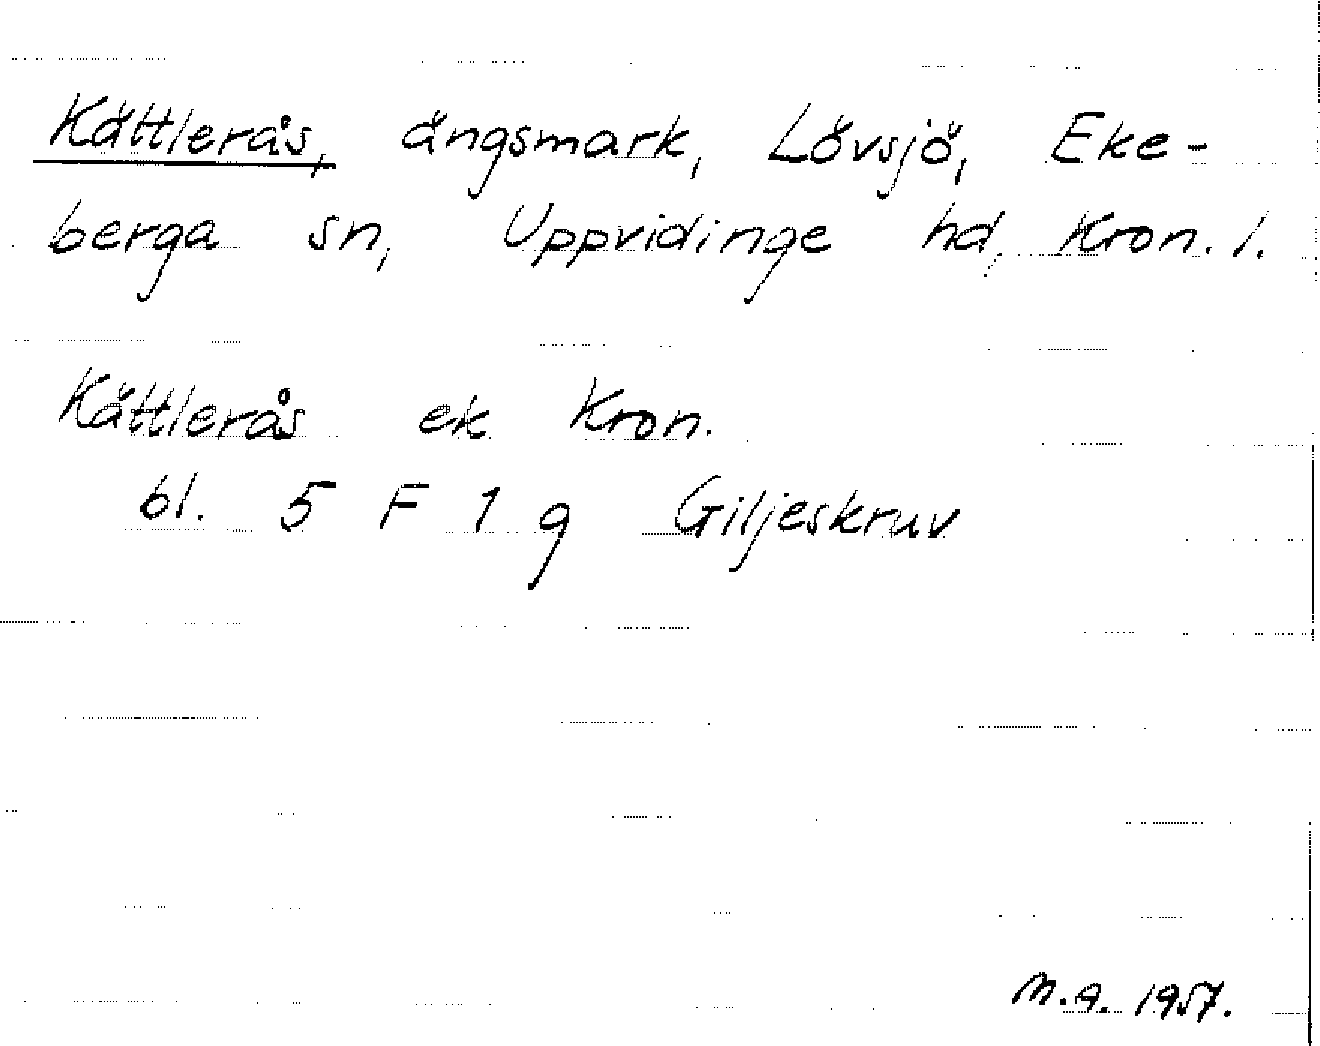 Kättlerås, ängsmark, Lövsjö, Eke-
berga sn, Uppvidinge hd, Kron. l.
Kättlerås ek Kron.
bl. 5 F 1 g Giljeskruv
M.A. 1957.